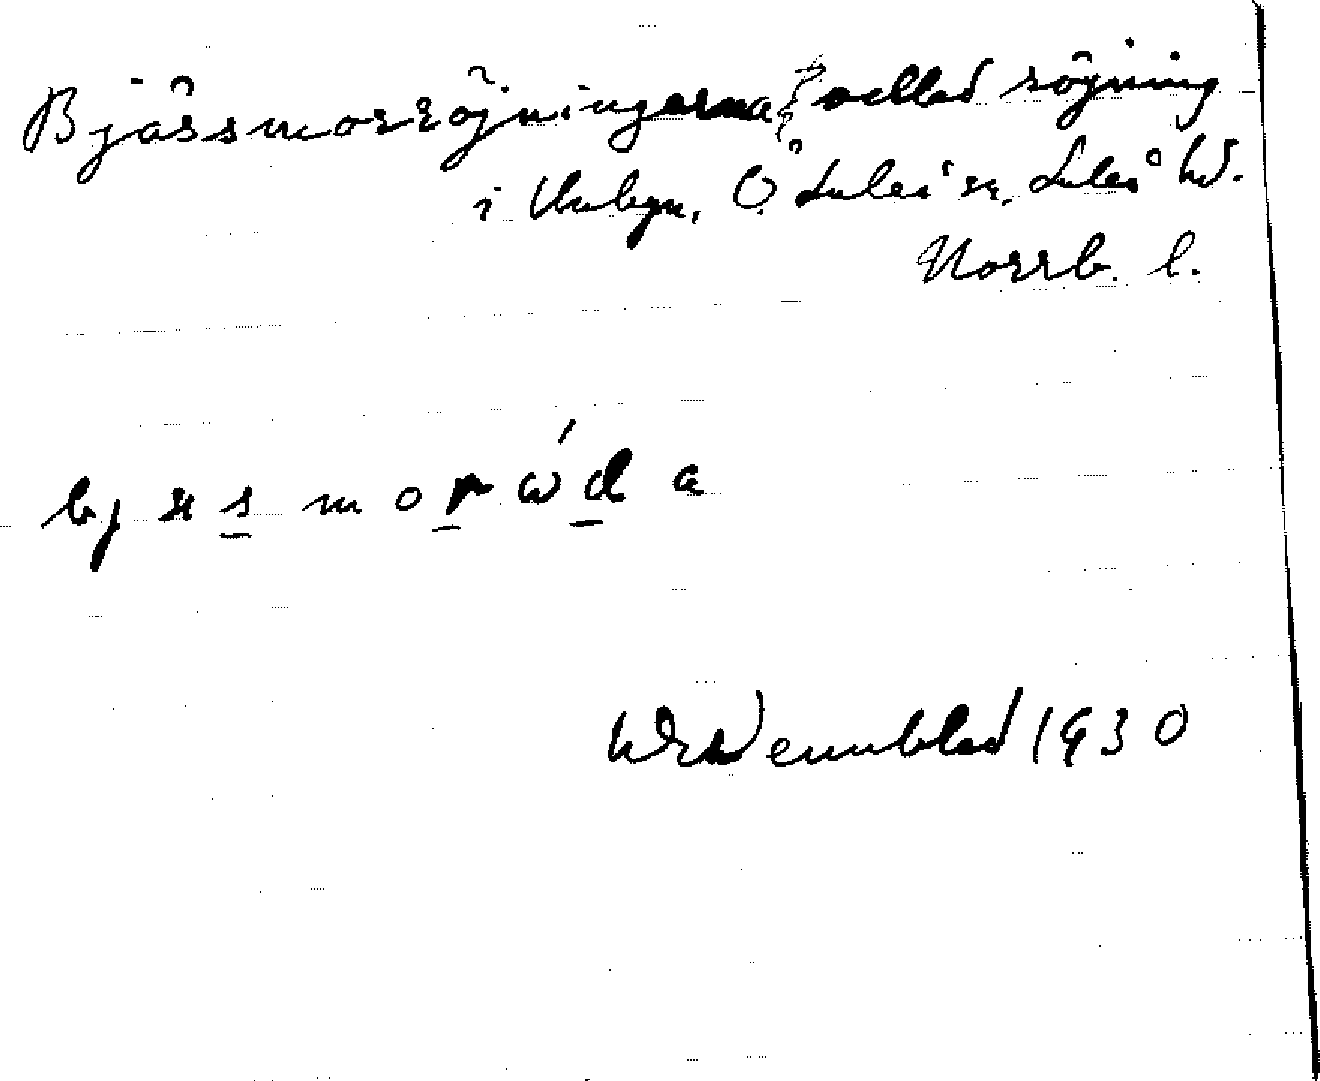 Bjässmorröjningarna, odlad röjning
i Unbyn, Ö. Luleå sn, Luleå td.
Norrb. l.
bj s m o r ώ d a
Wennblad 1930